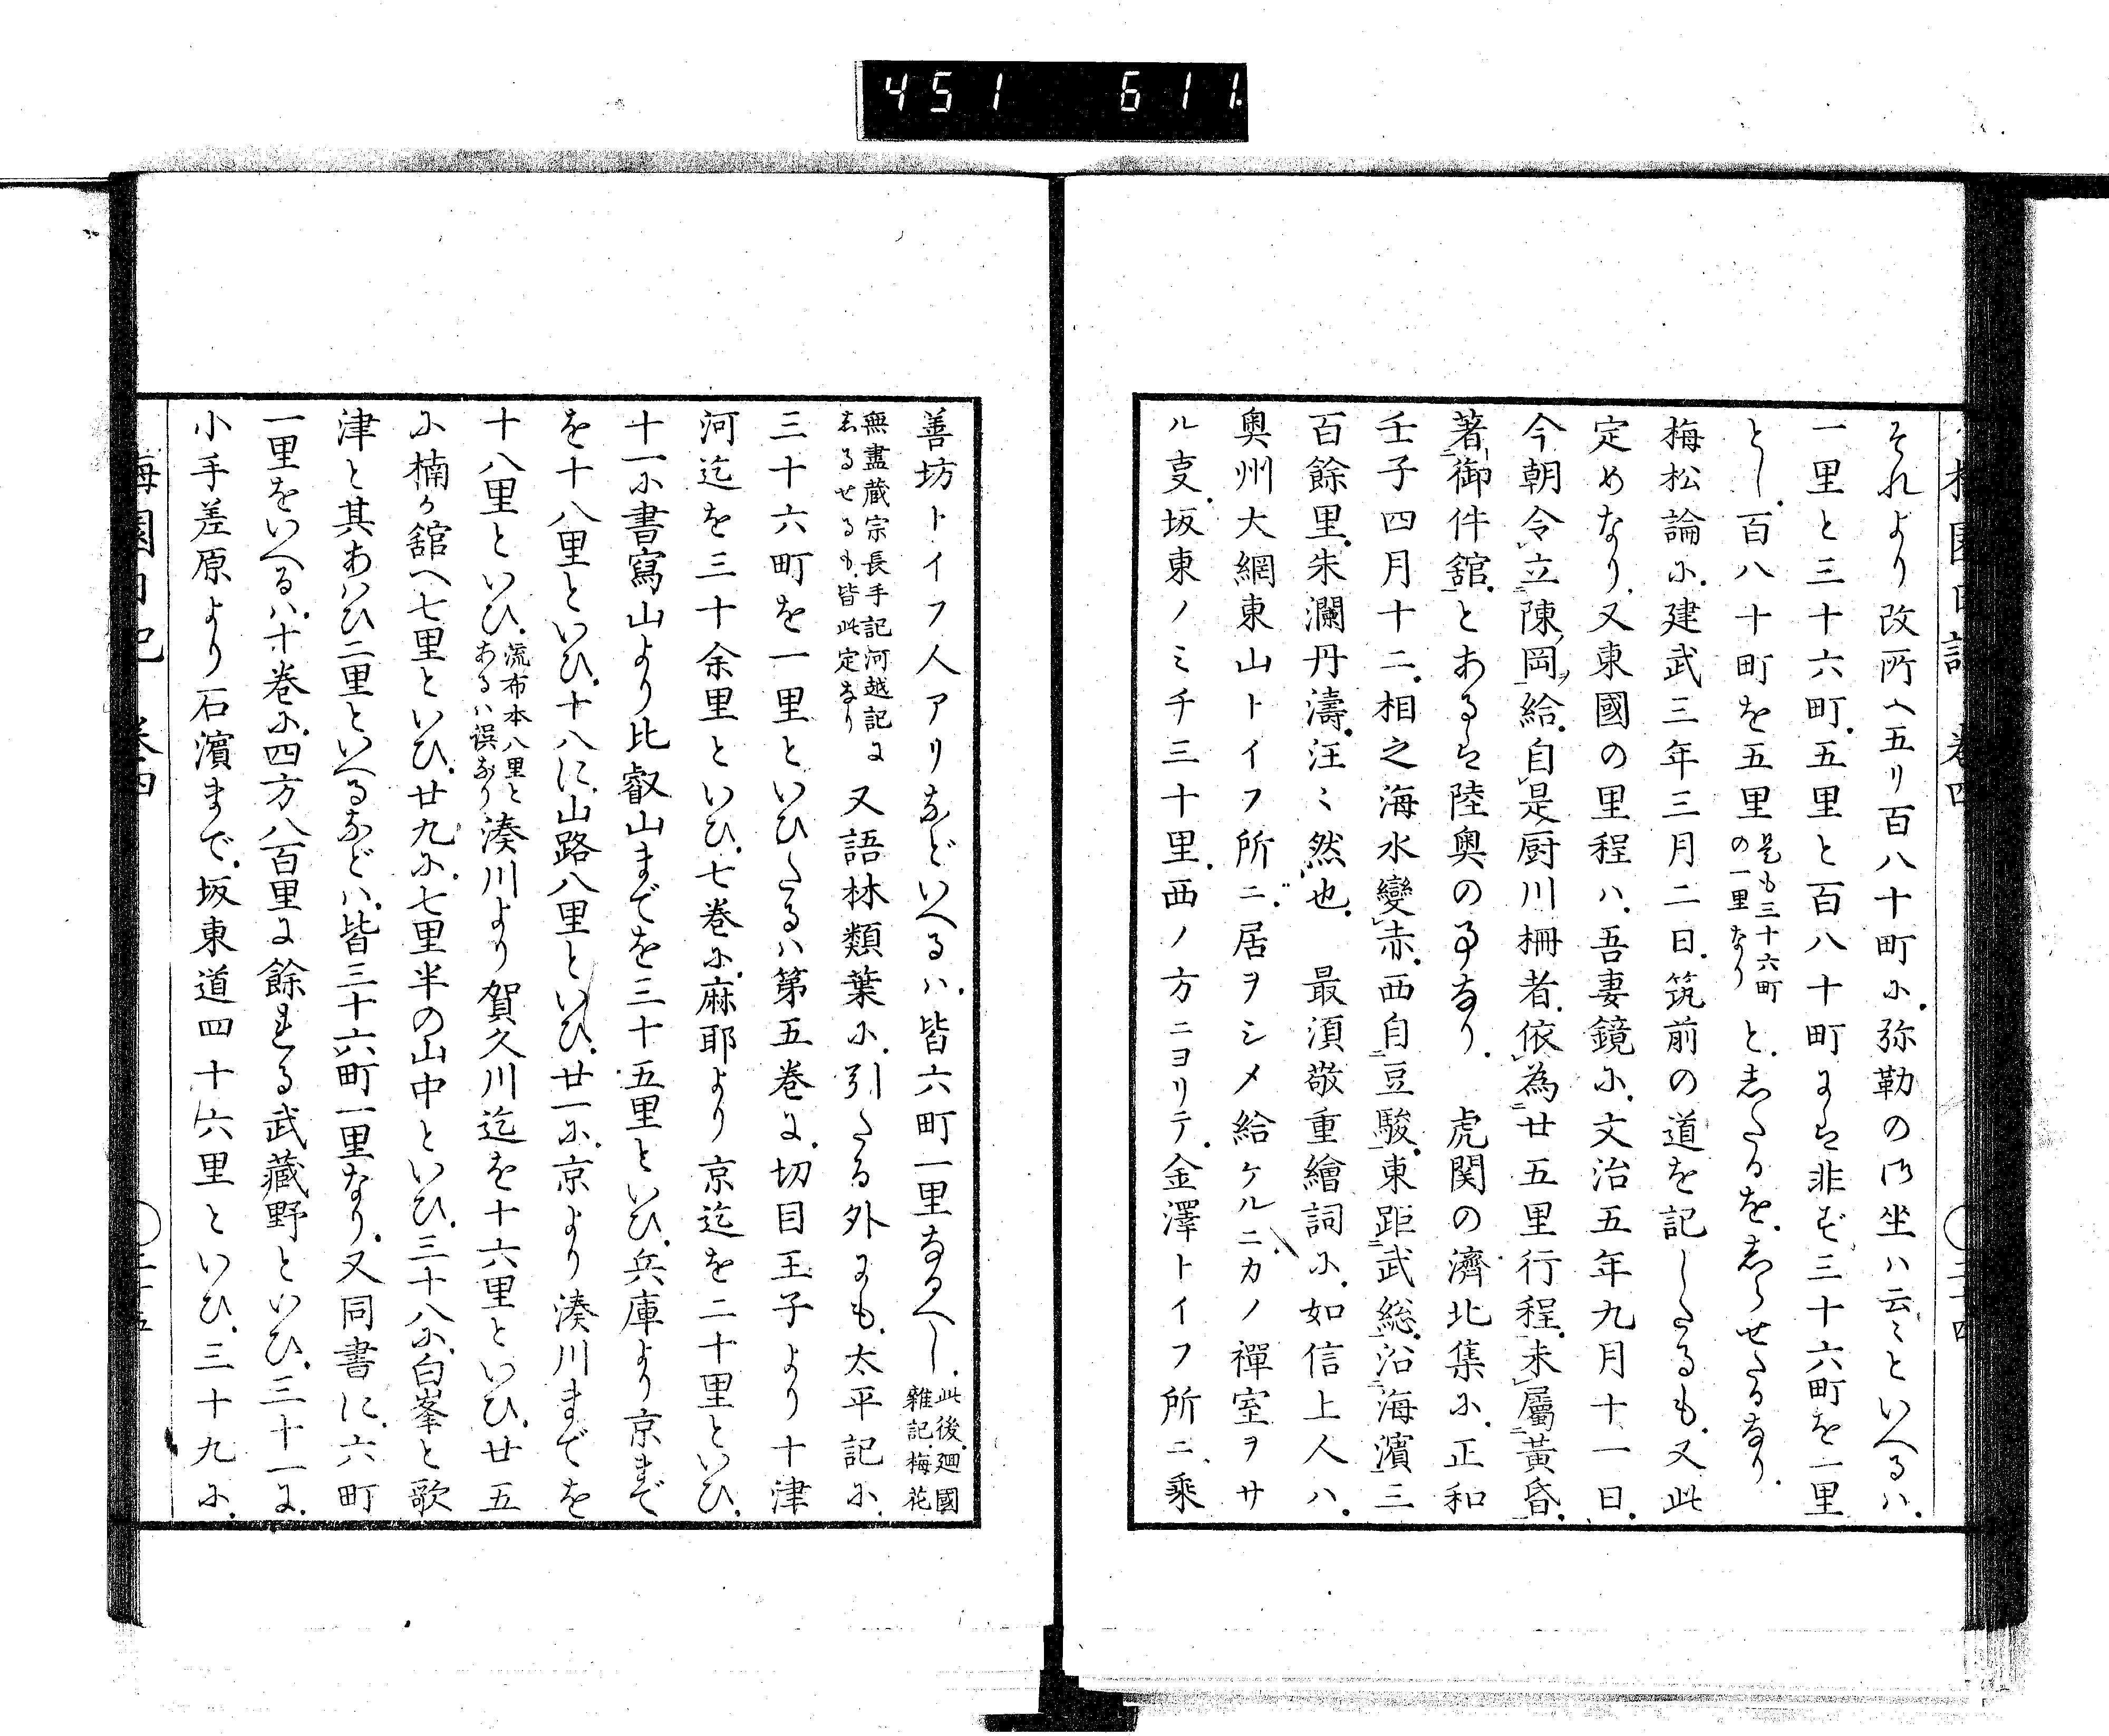 451 611
それより改所へ五リ百八十町に弥勒の御坐ハ云〻といへるハ
一里と三十六町五里と百八十町にハ非ず三十六町を一里
とし百八十町を五里
是も三十六町
の一里なり
としたるをしらせたるなり
梅松論に建武三年三月二日筑前の道を記したるも又此
定めなり又東國の里程ハ吾妻鏡に文治五年九月十一日
今朝令立陳岡給自是厨川柵者依為廿五里行程未屬黃昏
著御件舘とあるは陸奥の事なり 虎関の濟北集に正和
壬子四月十二相之海水變赤西自豆駿東距武総沿海濱三
百餘里朱瀾丹濤汪〻然也 最須敬重繪詞に如信上人ハ
奥州大網東山トイフ所ニ居ヲシメ給ケルニカノ禪室ヲサ
ル㕝坂東ノミチ三十里西ノ方ニヨリテ金澤トイフ所ニ乘
善坊トイフ人アリなどいへるハ皆六町一里なるへし
此後廻國
雜記梅花
無盡蔵宗長手記河越記に
しるせるも皆此定なり
又語林類葉に引たる外にも太平記に
三十六町を一里といひたるハ第五巻に切目王子より十津
河迄を三十余里といひ七巻に麻耶より京迄を二十里といひ
十一に書寫山より比叡山までを三十五里といひ兵庫より京まで
を十八里といひ十八に山路八里といひ廿一に京より湊川までを
十八里といひ
流布本八里と
あるハ誤なり
湊川より賀久川迄を十六里といひ廿五
に楠か舘へ七里といひ廿九に七里半の山中といひ三十八に白峯と歌
津と其あハひ二里といへるなどハ皆三十六町一里なり又同書に六町
一里をいへるハ十巻に四方八百里に餘れる武藏野といひ三十一に
小手差原より石濱まで坂東道四十六里といひ三十九に